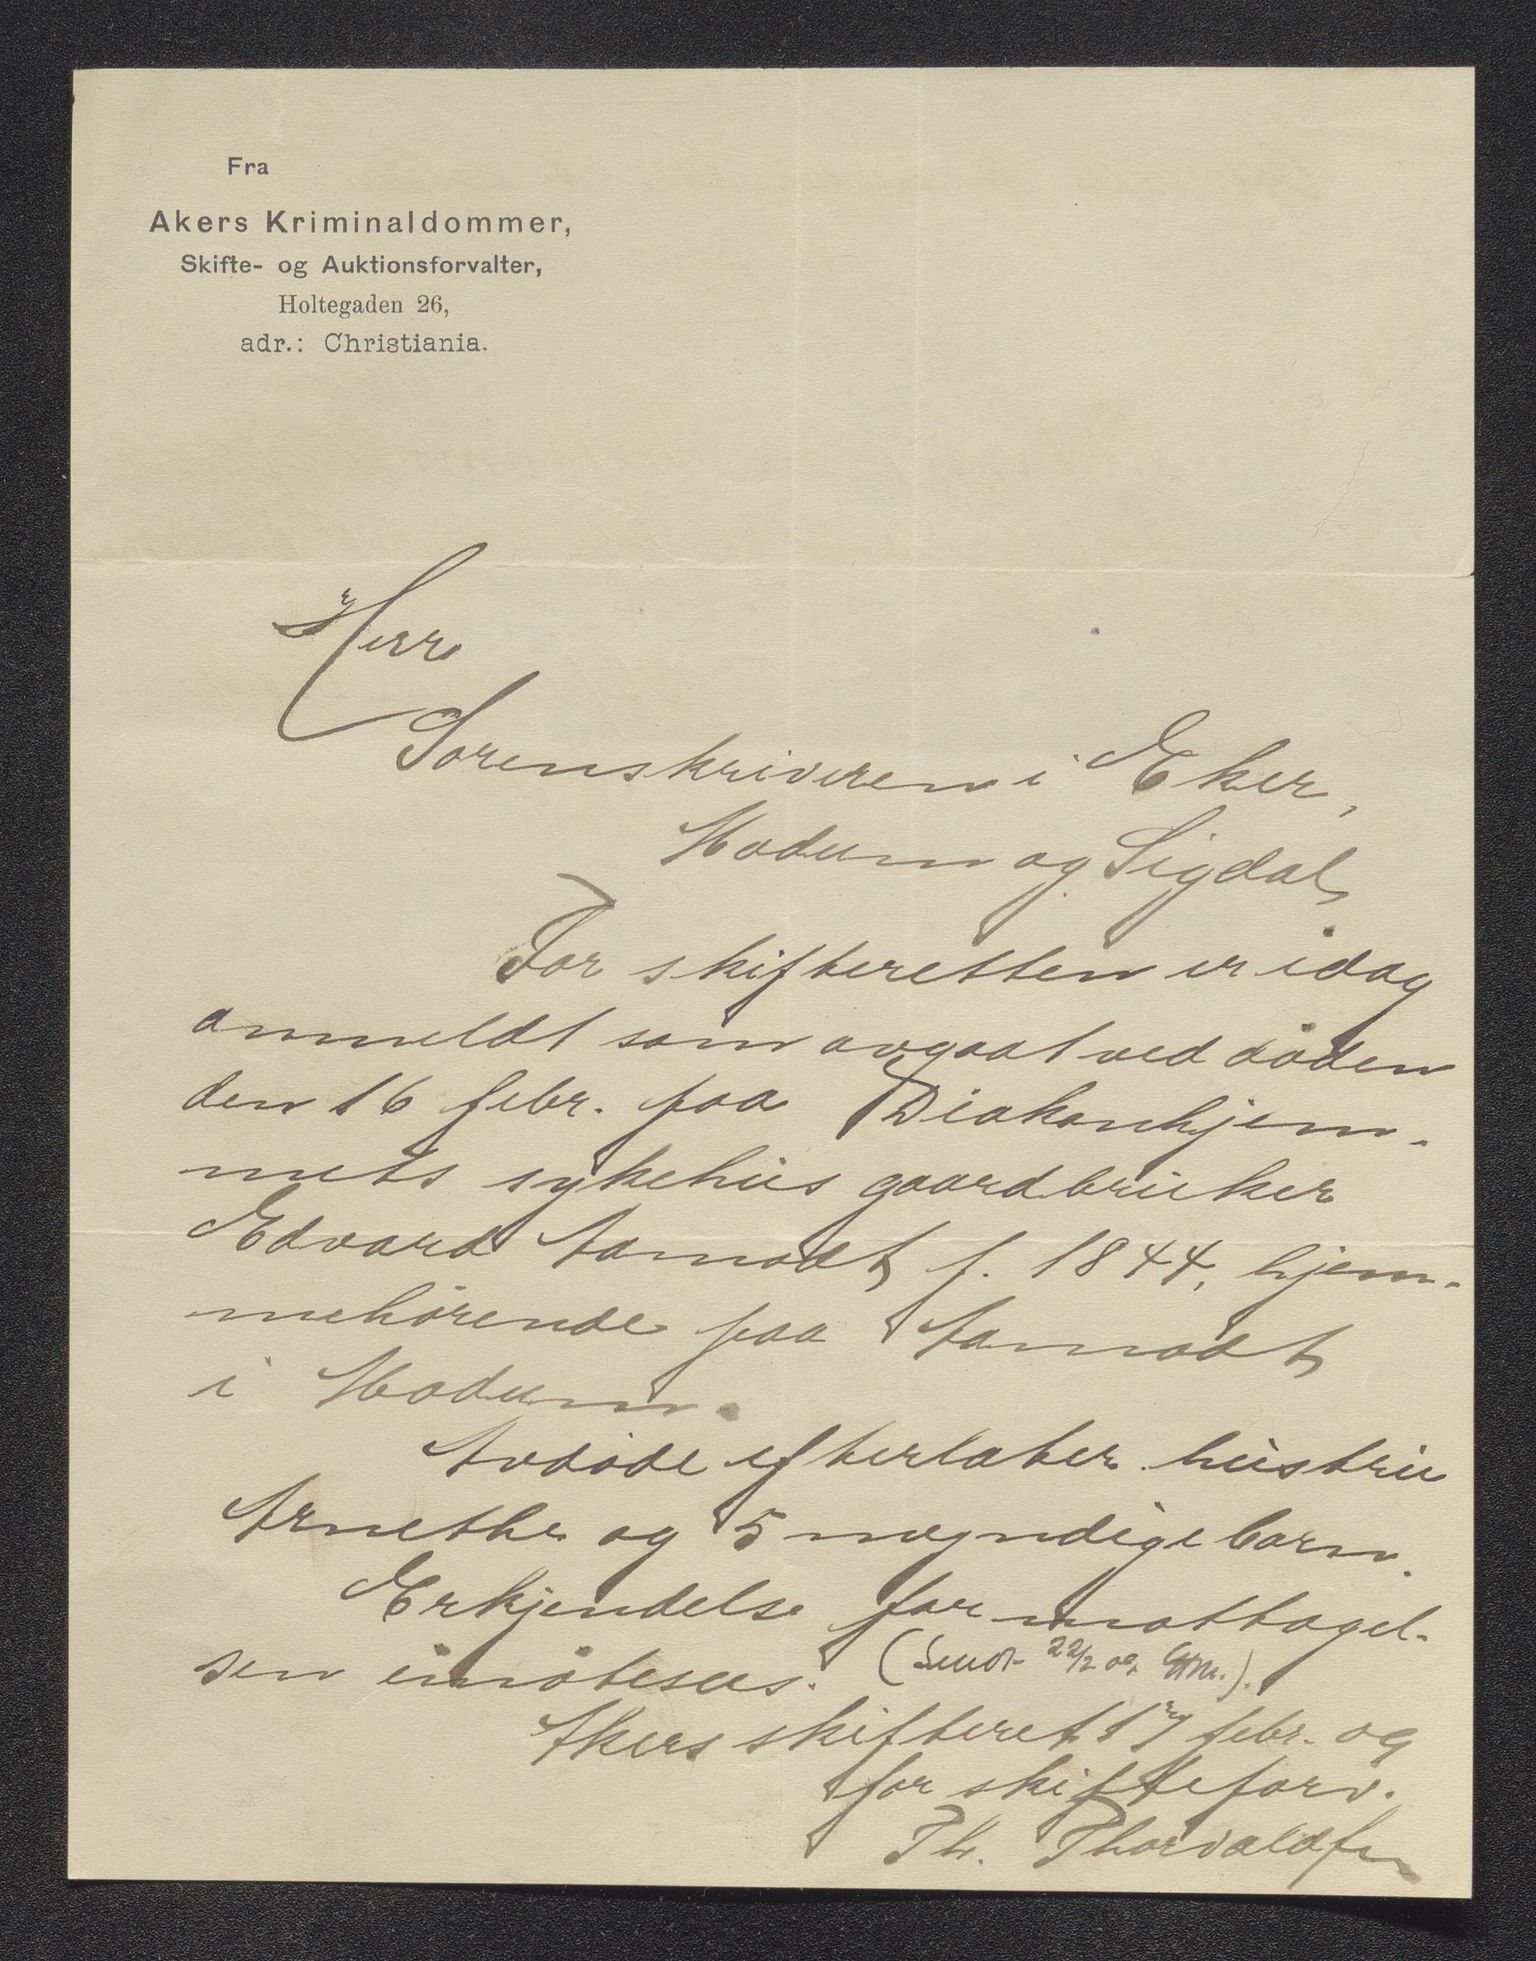 Fra
Akers Kriminaldommer,
Skifte- og Auktionsforvalter,
Holtegaden 26,
adr.: Christiania.
Herr
Sorenskriveren i Eker,
Modum og Sigdal,
For skifteretten er idag
anmeldt som avgaat ved døden
den 16 febr. paa Diakonhjem-
mets sykehus gaardbruker
Edvard Aamodt f. 1844, hjem-
mehørende paa Aamodt
i Modum.
Avdøde efterlater hustru
Arnethe og 5 myndige barn.
Erkjendelse for mottagel-
sen imøtesees. (Sendt 22/2 09.
Akers skifteret 17 febr. 09
for skifteforv.
Th. Thorvaldsen